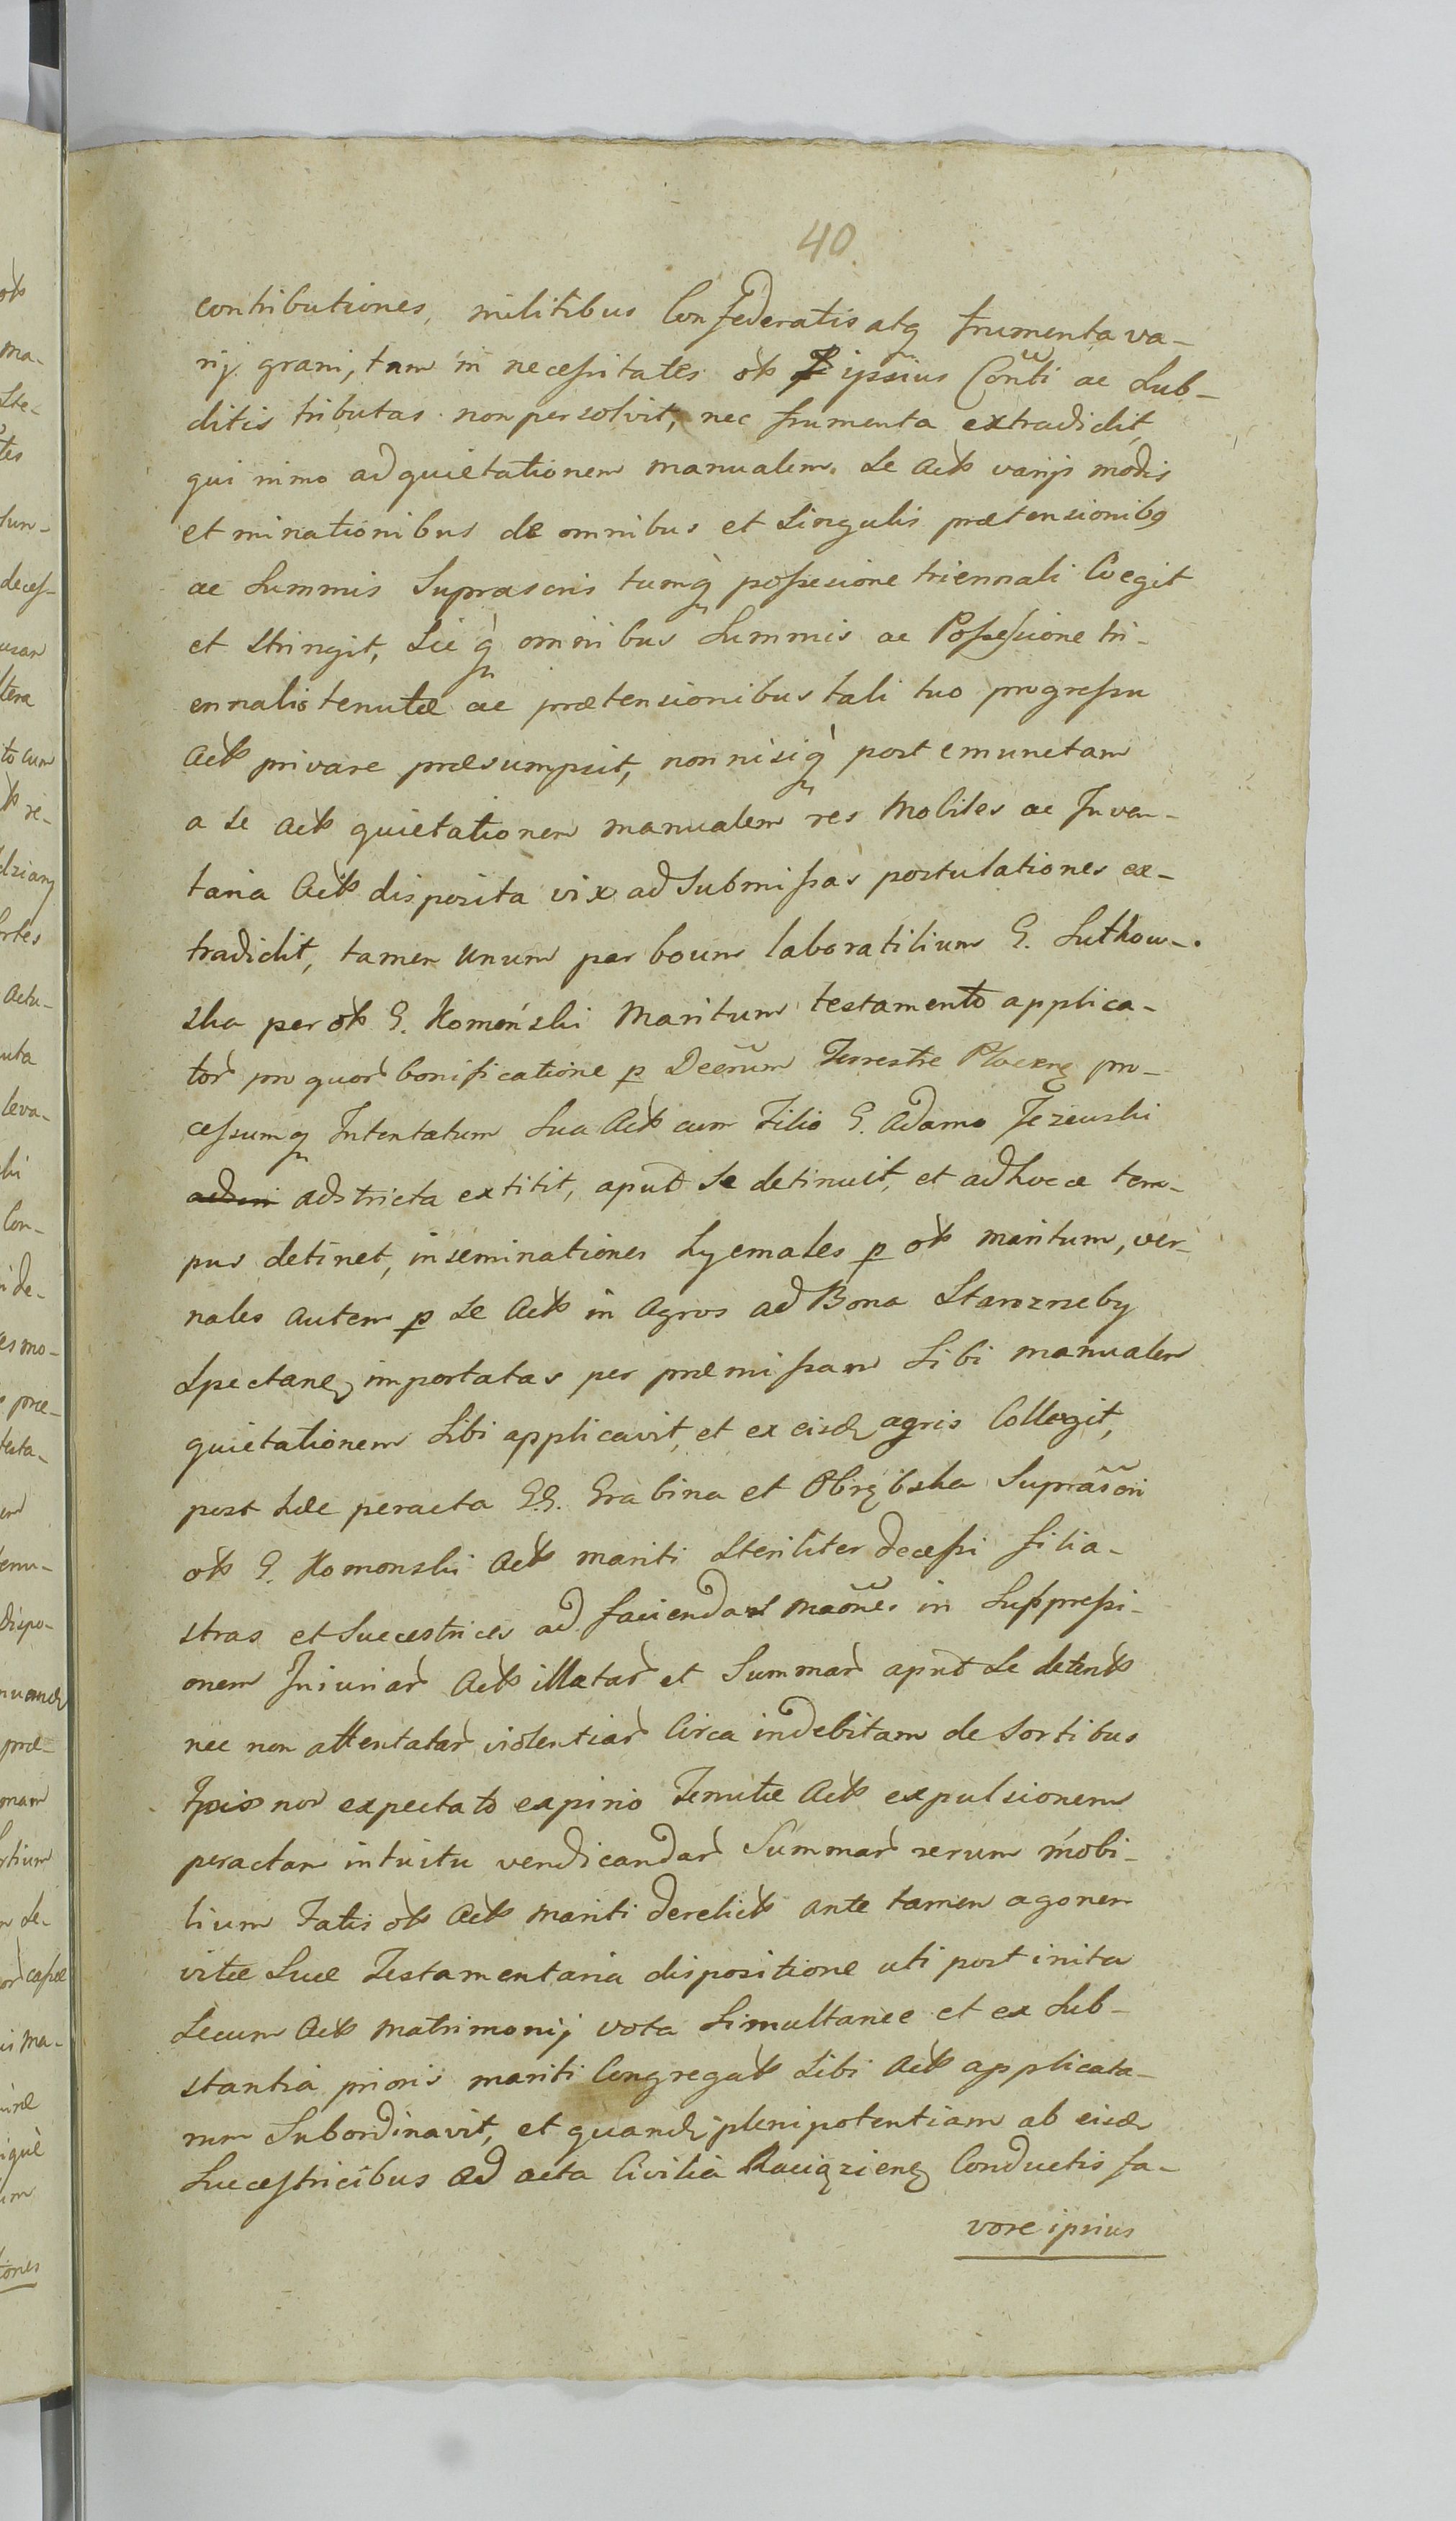 40
contributiones, militibus Confederatis atq frumenta va-
rij grani, tam in necessitates ipsius Contli ac sub-
ditis tributas non persolvit, nec frumenta extradidit,
qui nimo ad quietationem manualem se Act varijs modis
et minationibus de omnibus et singulis prætensionibq
ac summis suprascris tumq possesione triennali Coegit
et stringit, sicq omnibus summis ac Possessione tri-
ennalis tenutæ ac prætensionibus tali tuo progressu
Act privare præsumpsit, non nisiq post emunctam
a se Act quietationem manualem res mobiles ac Inven-
taria Act disposita vix ad submissas postulationes ex-
tradidit, tamen unum par boum laboratilium G. Sutkow-
ska per G. Komoński maritum testamento applica-
tor pro quor bonificatione p Decrum Terrestre Plocen pro-
cessumq Intentatum sua Act cum Filio G. Adamo Jeżewski
adstricta extitit, apud se detinuit, et adhucce tem-
pus detinet, inseminationes hyemales p maritum, ver-
nales autem p se Act in Agros ad Bona Starozreby
spectan importatas per præmissam sibi manualem
quietationem sibi applicavit, et ex eisd agris Collegit,
post hæc peracta G.G. Grabina et Obrębska suprascri
G. Komonski Act mariti steriliter decessi filia-
stras et successtrices ad faciendas maones in suppressi-
onem Iniuriar Act illatar et summar apud se detent
nec non attentatar violentiar Circa indebitam de sortibus
non expectato expirio Tenutæ Act expulsionem
peractam intuitu vendicandar summar rerum mobi-
lium Fatis Act mariti derelict ante tamen agonem
vitæ suæ Testamentaria dispositione uti post inita
secum Act matrimonij vota simultanee et ex sub-
stantia prioris mariti Congregat sibi Act applicata-
rum subordinavit, et quand plenipotentiam ab eisd
successtricibus ad acta Civilia Raciązien Conductis fa-
vore ipsius